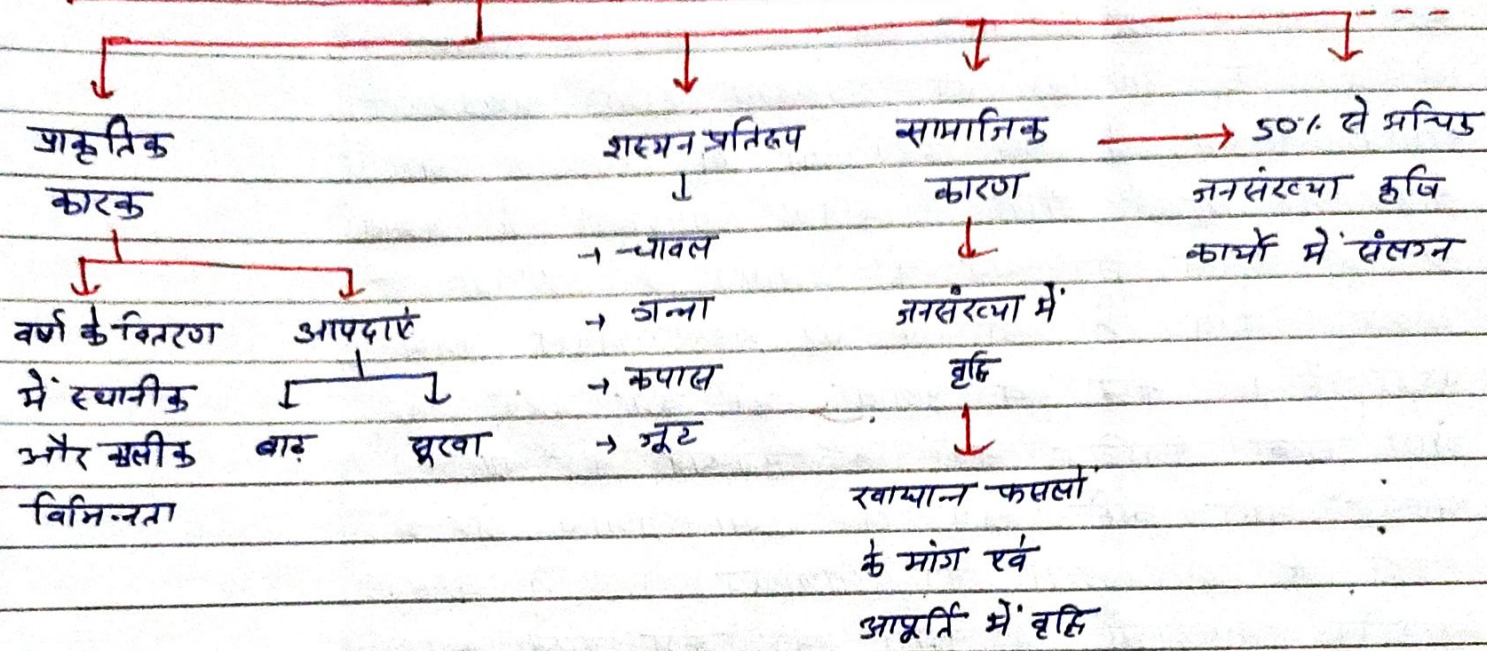 प्राकृतिक
कारक
वर्षा के वितरण
में स्थानीक
और कालीक
विभिन्नता
आपदाएं
बाढ़
सूखा
शस्यन प्रतिरूप
→ चावल
→ गन्ना
→ कपास
→ जूट
सामाजिक
कारण
जनसंख्या में
वृद्धि
खाद्यान्न फसलों
के मांग एवं
आपूर्ति में वृद्धि
→ 50% से अधिक
जनसंख्या कृषि
कार्यों में संलग्न